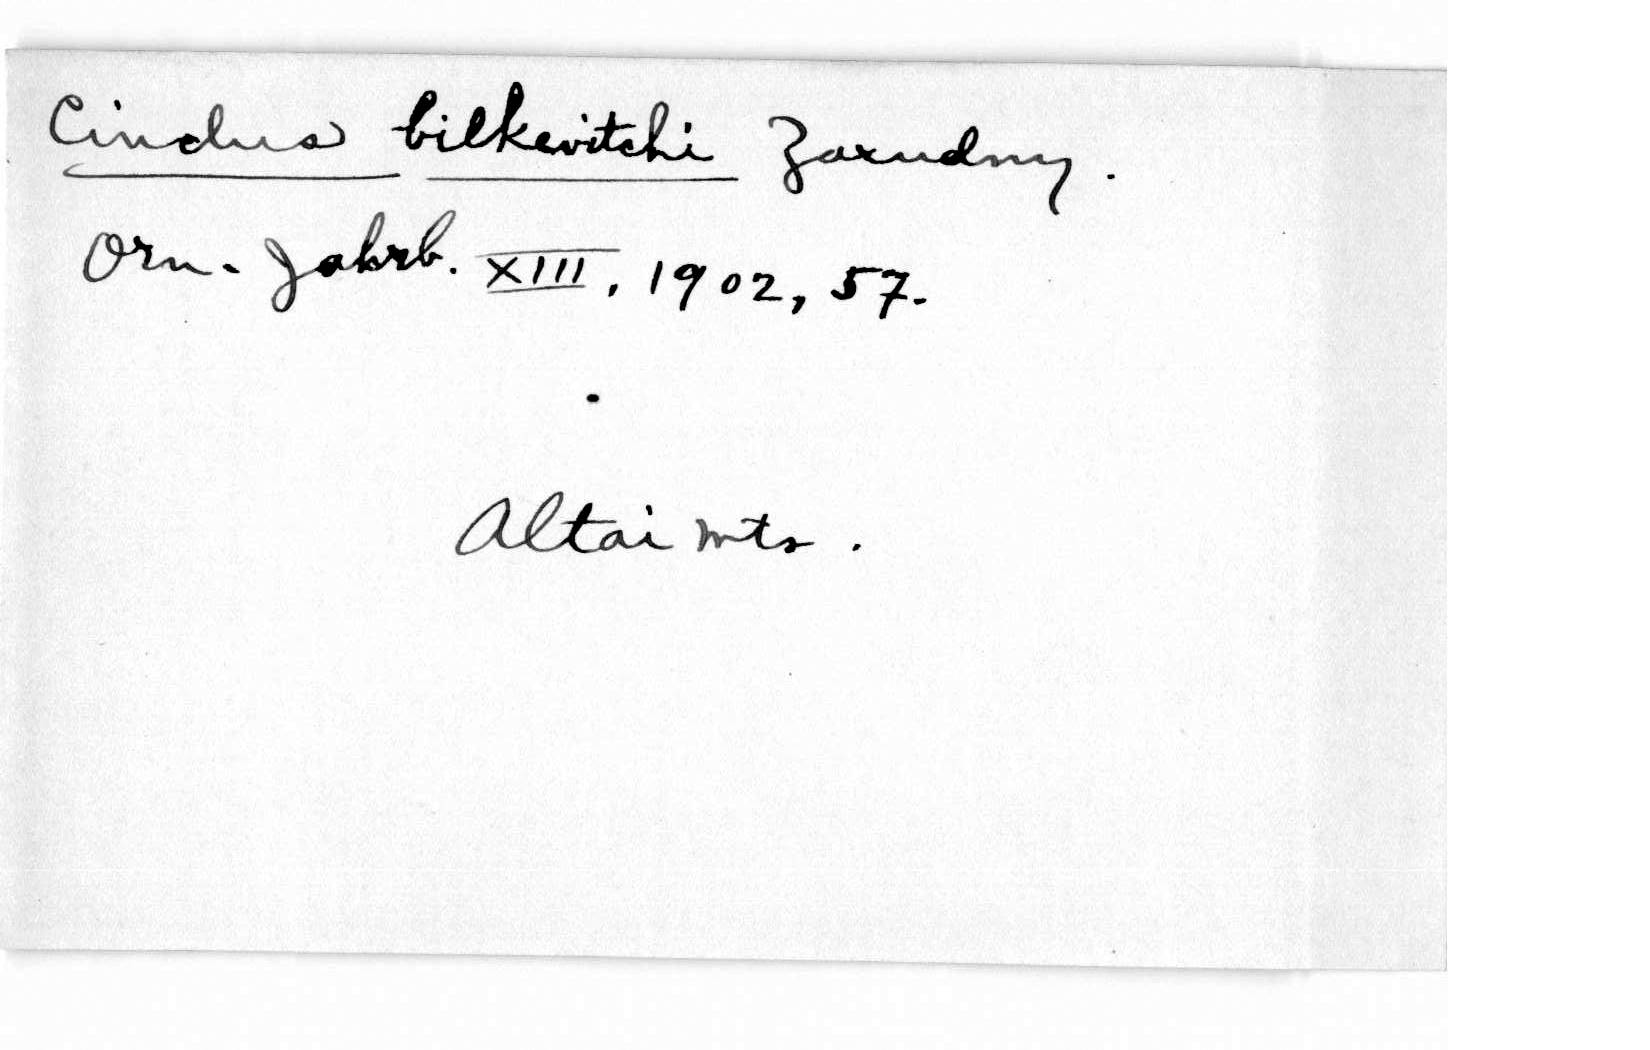 Cinclus bilkevitchi Zarudny.
Orn. Jahrb. XIII, 1902, 57.
Altai Mts.